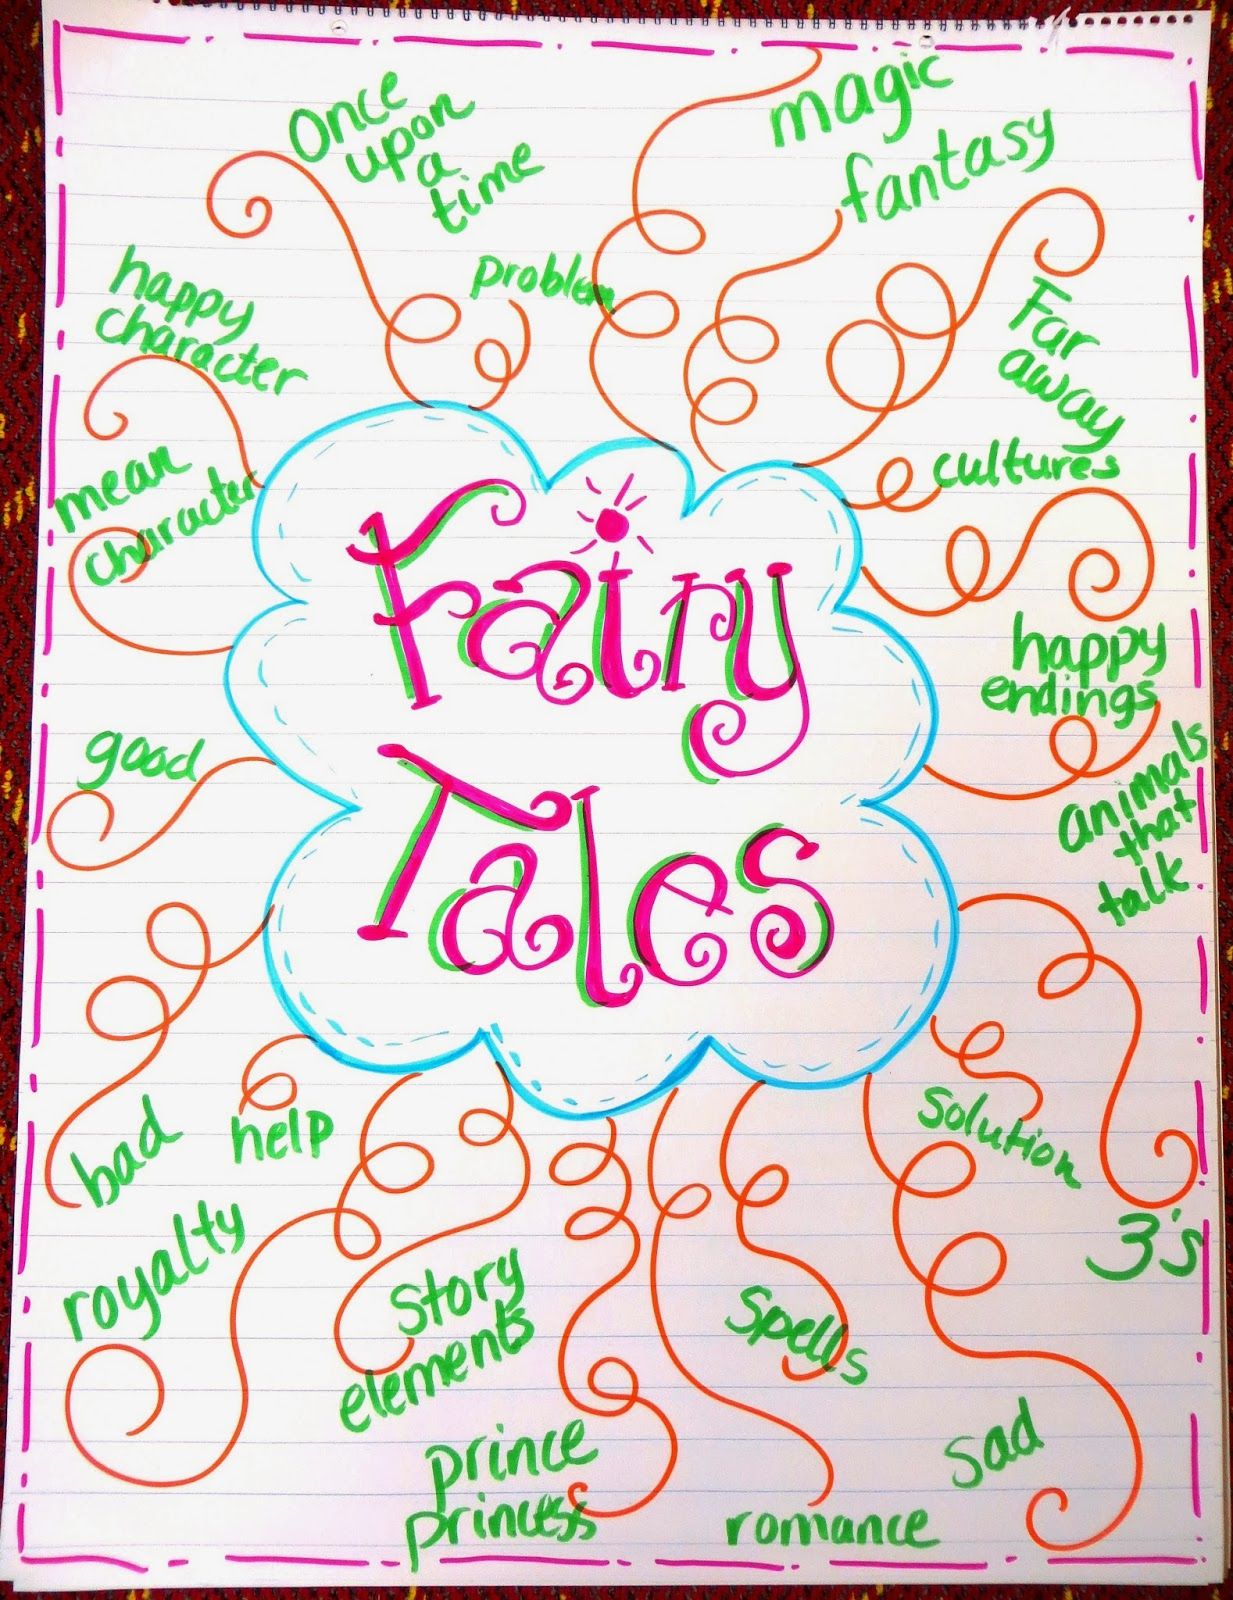 Once
upon
a
time
magic
fantasy
problem
happy
character
Far
away
mean
character
cultures
Fairy
Tales
happy
endings
good
animals
that
talk
bad
help
solution
royalty
3's
story
elements
spells
prince
princess
sad
romance